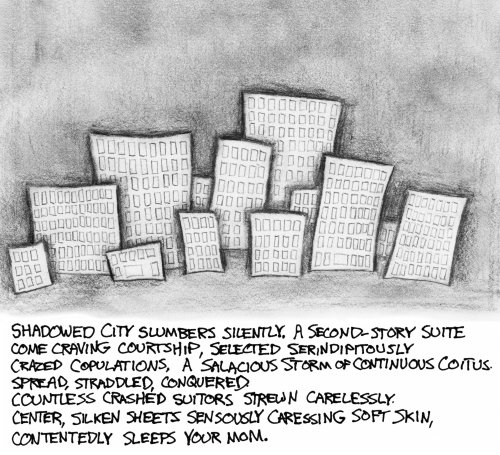 SHADOWED CITY SLUMBERS SILENTLY. A SECOND-STORY SUITE
COME CRAVING COURTSHIP, SELECTED SERINDIPITOUSLY
CRAZED COPULATIONS, A SALACIOUS STORM OF CONTINUOUS COITUS.
SPREAD, STRADDLED, CONQUERED
COUNTLESS CRASHED SUITORS STREWN CARELESSLY.
CENTER, SILKEN SHEETS SENSOUSLY CARESSING SOFT SKIN,
CONTENTEDLY SLEEPS YOUR MOM.